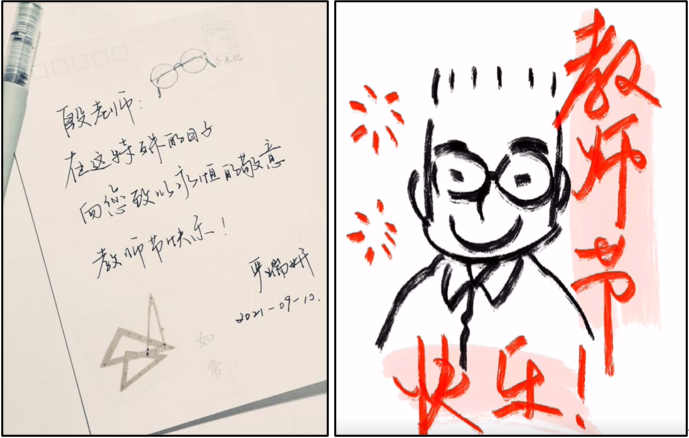 殷老师:
在这特殊的日子
向您致以永恒的敬意
教师节快乐!
2021-09-10.
如
常
教
师
节
快乐!